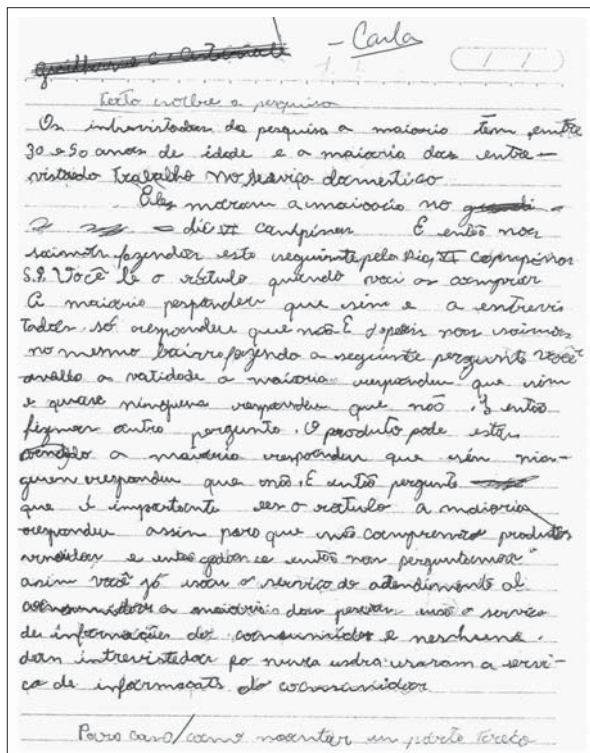 - Carla
Texto sobre a pesquisa
Os intrevistados da pesquisa a maiorio têm entre
30 e 50 anos de idade e a maioria das entre-
vistado Trabalho no serviço domestico
Eles moram a maioorio no
dic VI campinas E entos nos
saimos fazendos esta seguinte pelo Dic VI
S.P. Você lê o rótulo quando vai os comprar
A maiorio responder que sim e a entrevis
tados só respondeu que não E depois nos saimos
no mesmo bairro fazendo a seguinte pergunto você
avalho a validade a maioria respondeu que sim
e quase ninguem respondeu que não. E entos
fizemos outro pergunto. O produto pode estar
a maioria responder que sim nin-
guem respondeu que não. E entos pergunto
que é importante ler o rotulo a maioria
respondeu assim para que não compremos produtos
vencidos e entos nos perguntamos
asim você já usou o serviço do atendimento al
consumidor a maioria dos pessoas usão o serviço
de informações do consumidor e
dos intrevistedos po nunca usaram a servi-
ço de informacoes do consumidor
Para casa/como montar um